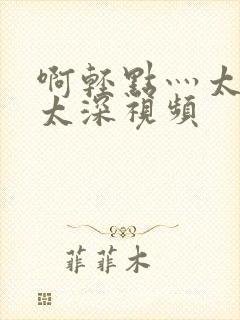 啊輕點灬太
太深視頻
菲菲木